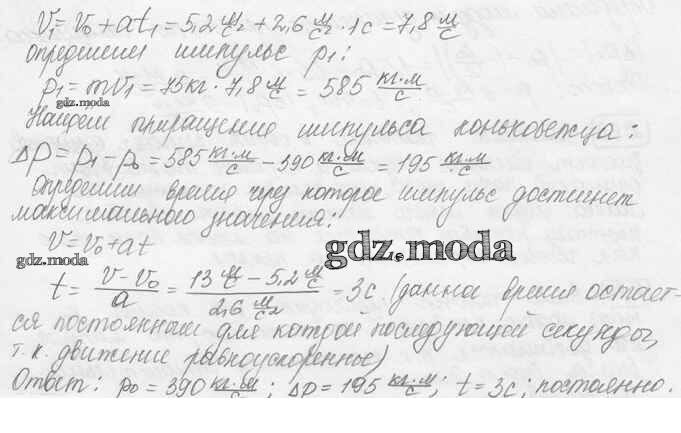 V₁ = V₀ + at₁ = 5,2 м/с² + 2,6 м/с² · 1с = 7,8 м/с
определим импульс p₁:
p₁ = mV₁ = 75кг · 7,8 м/с = 585 кг·м/с
gdz.moda
Найдём приращение импульса конькобежца:
Δp = p₁ - p₀ = 585 кг·м/с - 390 кг·м/с = 195 кг·м/с
gdz.moda
Определим время через которое импульс достигнет
максимального значения:
V = V₀ + at
gdz.moda
t = (V - V₀)/a = (13 м/с - 5,2 м/с)/(2,6 м/с²) = 3с. (данна время остает-
ся постоянным для которой последующей секунды,
т.к. движение равноускоренное)
Ответ: p₀ = 390 кг·м/с; Δp = 195 кг·м/с; t = 3с; постоянно.